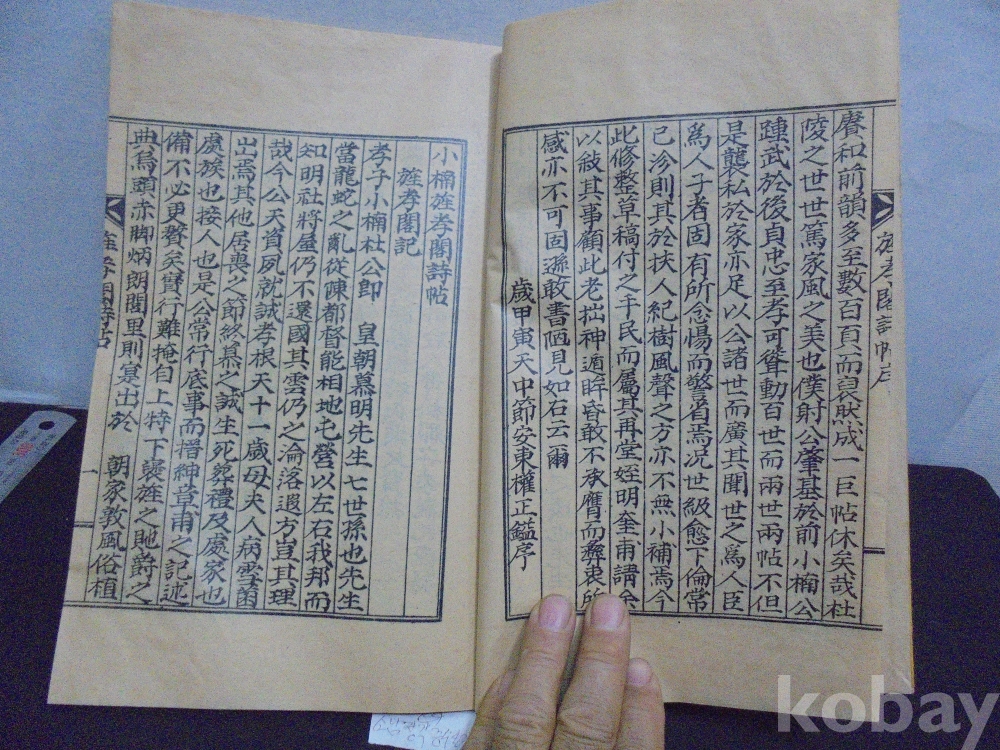 旌孝閣詩帖序
賡和前韻多至數百頁而裒然成一巨帖休矣哉杜
陵之世世篤家風之美也僕射公肇基於前小楠公
踵武於後貞忠至孝可聳動百世而兩世兩帖不但
是襲私於家亦足以公諸世而廣其聞世之爲人臣
爲人子者固有所念惕而警省焉况世級愈下倫常
已沴則其於扶人紀樹風聲之方亦不無小補焉今
此修整草稿付之手民而屬其再堂姪明奎甫請余
以敍其事顧此老拙神遁眸昏敢不承膺而彝衷所
感亦不可固遜敢書陋見如右云爾
歲甲寅天中節安東權正鑑序
小楠旌孝閣詩帖
旌孝閣記
孝子小楠杜公卽 皇朝慕明先生七世孫也先生
當龍蛇之亂從陳都督能相地屯營以左右我邦而
知明社將屋仍不還國其雲仍之淪落遐方豈其理
哉今公天資夙就誠孝根天十一歲母夫人病雪菌
出焉其他居喪之節終慕之誠生死葬禮及處家也
處族也接人也是公常行底事而搢紳章甫之記述
備不必更贅矣實行難掩自上特下褒旌之貤爵之
典烏頭赤脚炳朗閭里則寔出於 朝家敦風俗植
旌孝閣詩帖
一
kobay